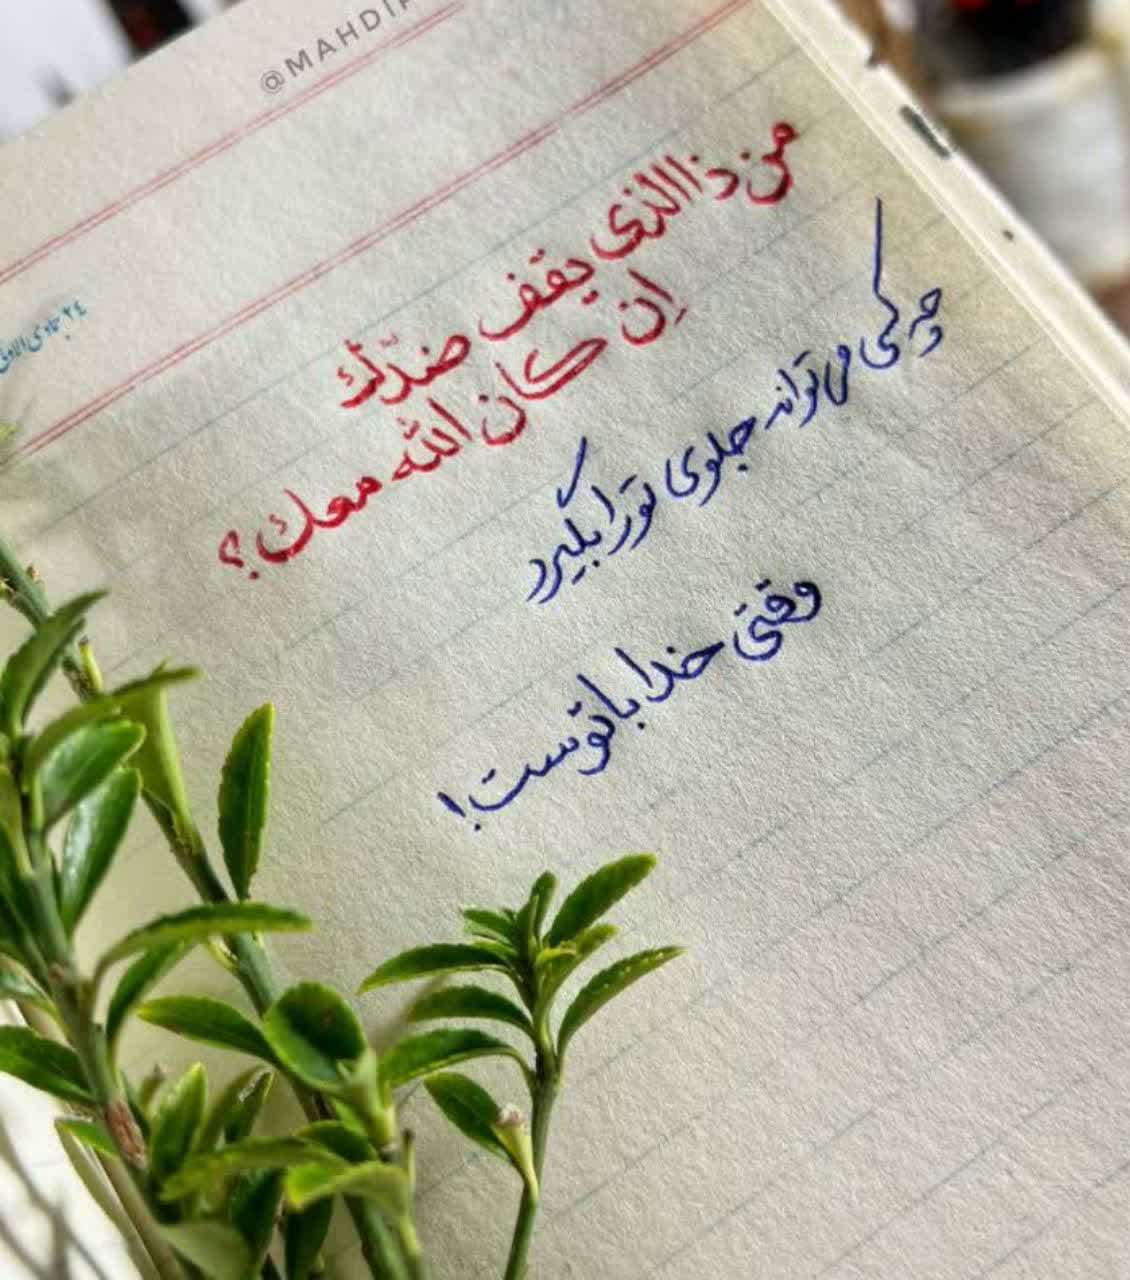 @MAHDI
۲۴ جمادی الاولی
من ذا الذی یقف ضدّك
إن کان الله معك ؟
چه کسی می تواند جلوی تو را بگیرد
وقتی خدا با توست !